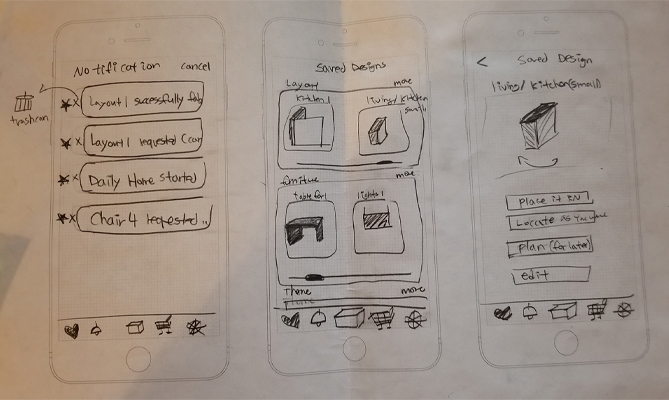 Notification cancel
Layout1 sucessfully
trashcan
Layout1 requested
Daily Home started
Chair4 requested ..
Saved Designs
Layout more
kitchen1 living/kitchen
small
furnitue more
table for1 lights1
Theme more
< Saved Design
living/kitchen(small)
Place it IN
Locate as
Plan (for later)
edit